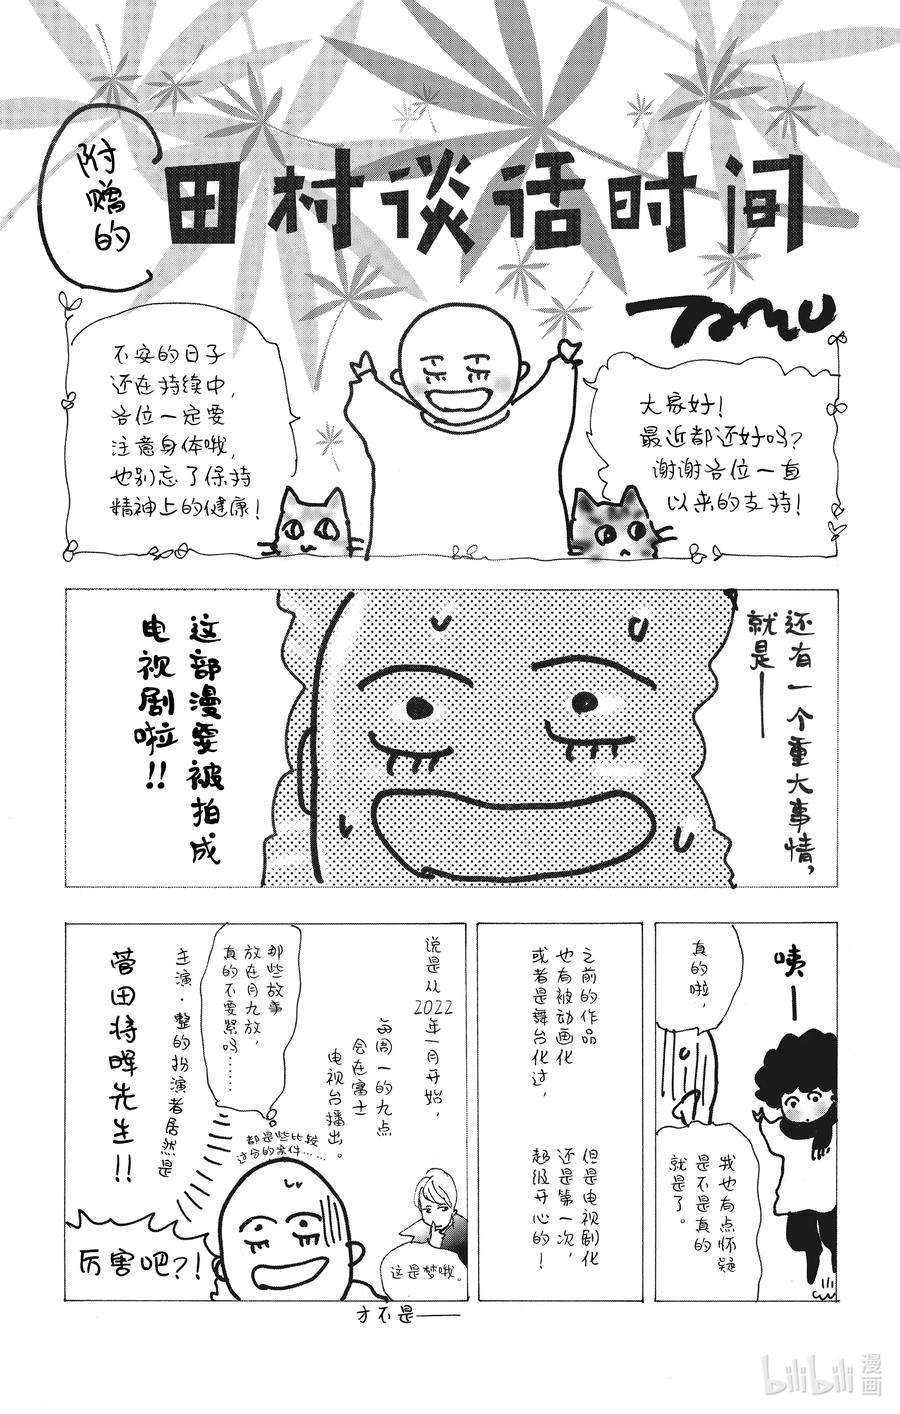 附赠的
田村谈话时间
大家好！
最近都还好吗？
谢谢各位一直
以来的支持！
不安的日子
还在持续中，
各位一定要
注意身体哦，
也别忘了保持
精神上的健康！
还有一个重大事情，
就是——
这部漫要被拍成
电视剧啦！！
咦—
真的啦，
我也有点怀疑
是不是真的
就是了。
之前的作品
也有被动画化
或者是舞台化过，
但是电视剧化
还是第一次，
超级开心的！
说是从
2022
年一月开始，
每周一的九点
会在富士
电视台播出。
那些故事
放在月九放，
真的不要紧吗……
都是些比较
过分的案件……
主演·整的扮演者居然是
菅田将晖先生！！
厉害吧？！
这是梦哦。
才不是——
bilibili
漫画